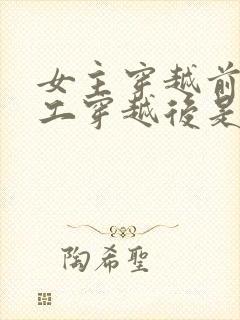 女主穿越前
工穿越後是
陶希聖